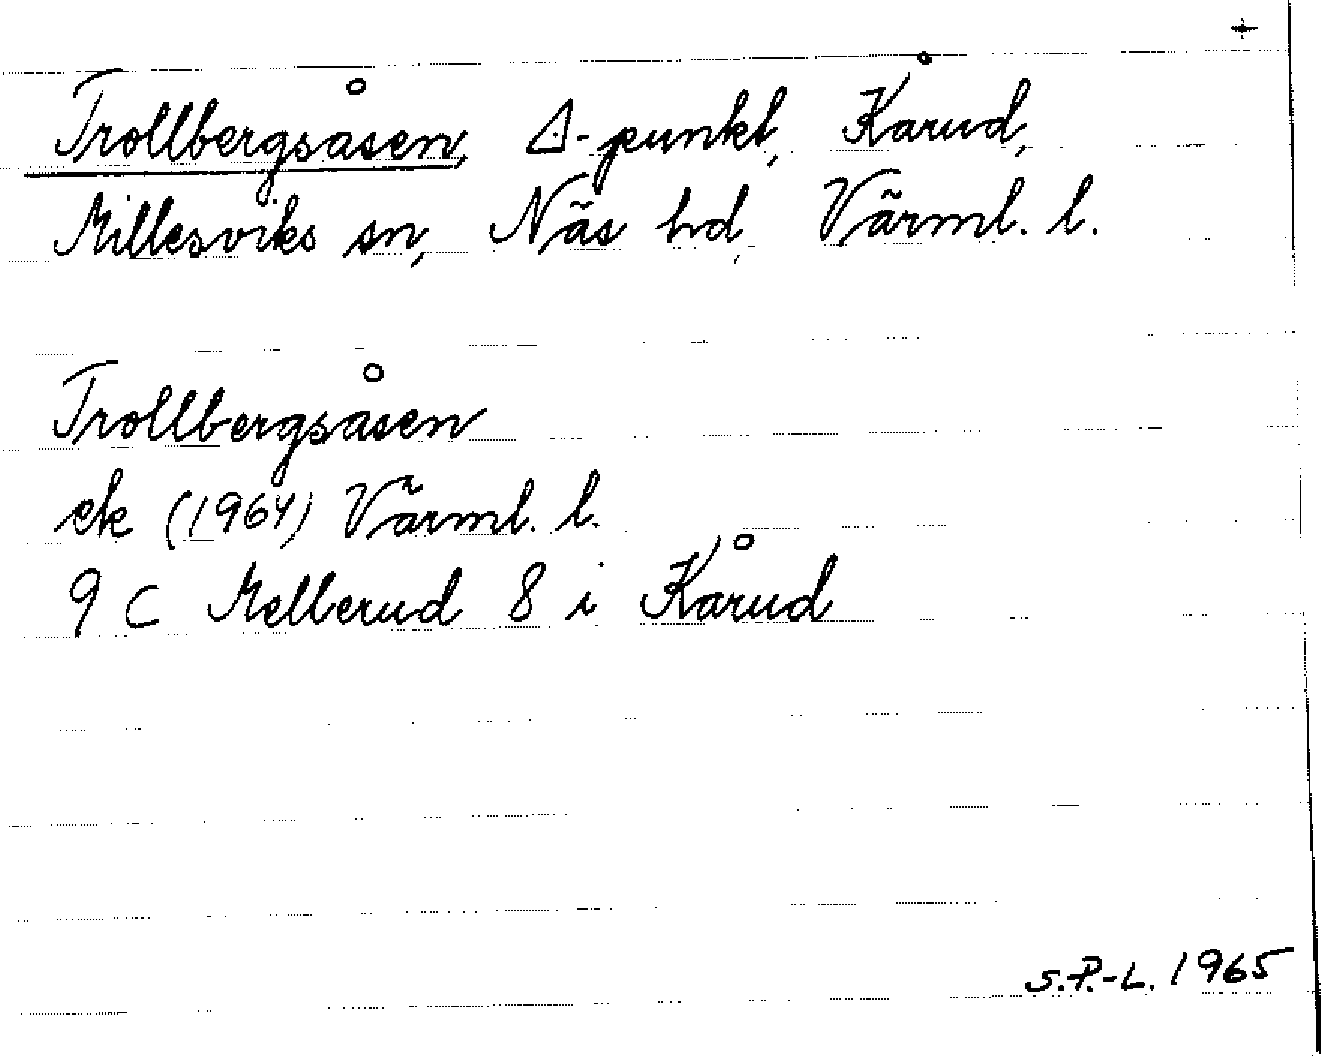 Trollbergsåsen, △-punkt, Kårud,
Millesviks sn, Näs hd, Värml. l.
Trollbergsåsen
ek (1964) Värml. l.
9 C Mellerud 8 i Kårud
S.P.-L. 1965